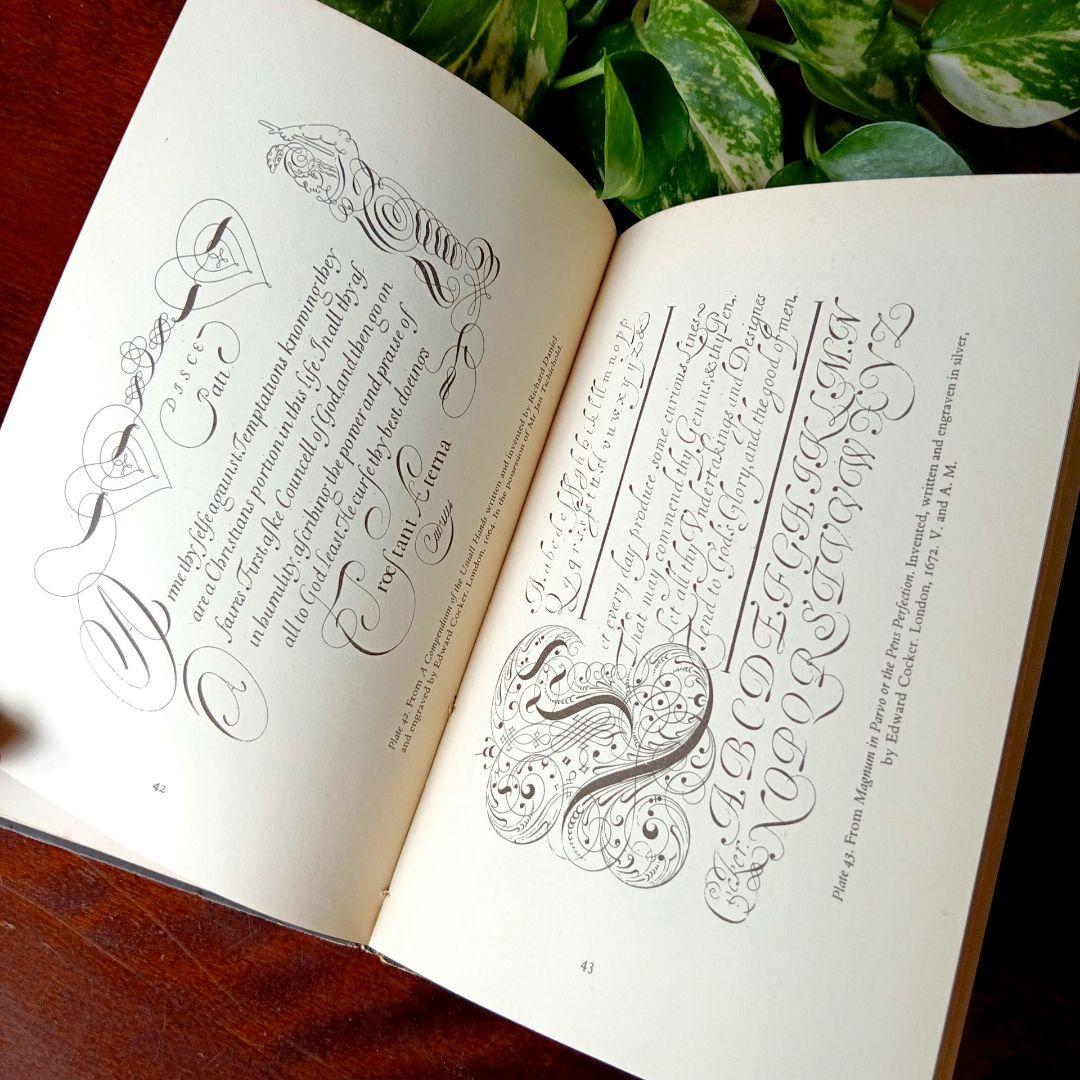 DISCE
Pati
Arme thy selfe against Temptations knowing they
are a Christians portion in this life. In all thy af
faires First aske Councell of God, and then go on
in humility, ascribing the power and praise of
all to God, least He curse thy best doeings
Prœstant Æterna
Caducis
Plate 42. From A Compendium of the Usuall Hands written and invented by Richard Daniel
and engraved by Edward Cocker. London, 1664. In the possession of Mr Jan Tschichold.
42
et every day produce some curious Lines,
That may commend thy Genius, & thy Pen.
Let all thy Vndertakings and Designes
Tend to God's Glory, and the good of men.
A B C D E F G H I K L M N
N O P Q R S T V U W X Y Z
Cocker
Plate 43. From Magnum in Parvo or the Pens Perfection. Invented, written and engraven in silver,
by Edward Cocker. London, 1672. V. and A. M.
43